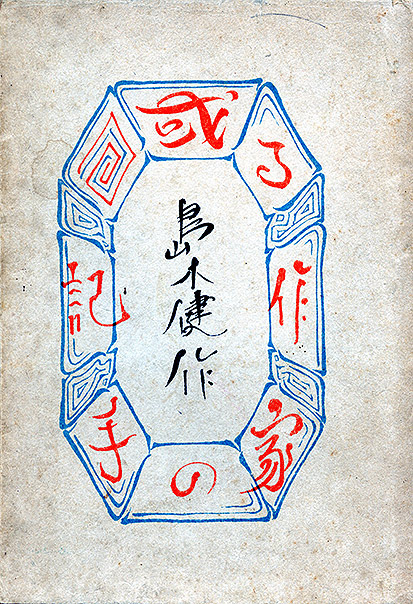 或る作家の手記
島木健作